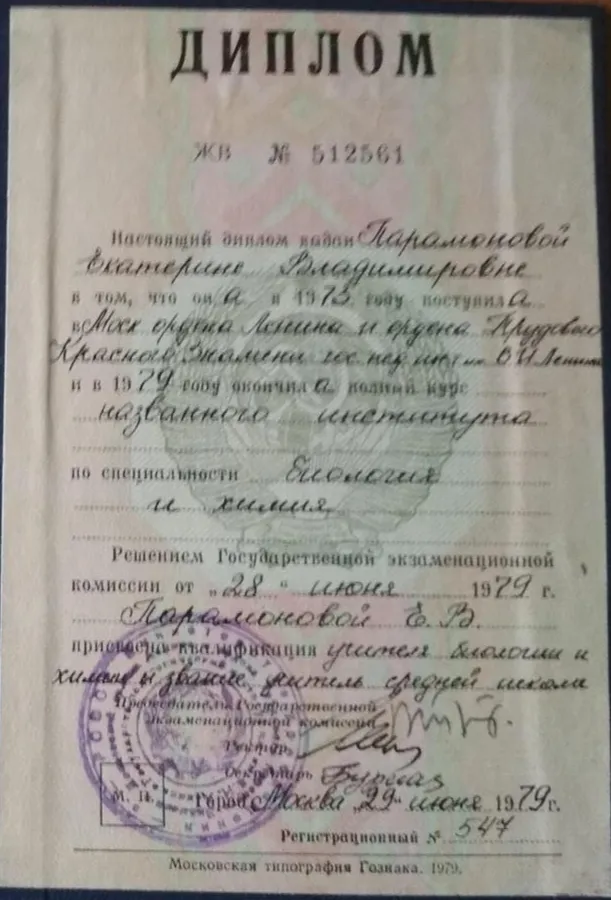 ДИПЛОМ
ЖВ № 512561
Настоящий диплом выдан Парамоновой
Екатерине Владимировне
в том, что она в 1973 году поступила
в Моск ордена Ленина и ордена Трудового
Красного Знамени гос. пед. инт им. В И Ленина
и в 1979 году окончила полный курс
названного института
по специальности биология
и химия
Решением Государственной экзаменационной
комиссии от „28“ июня 1979 г.
Парамоновой Е. В.
присвоена квалификация учителя биологии и
химии и звание учитель средней школы
Председатель Государственной
экзаменационной комиссии
Ректор
Секретарь
М. П. Город Москва „29“ июня 1979 г.
Регистрационный № 547
Московская типография Гознака. 1979.